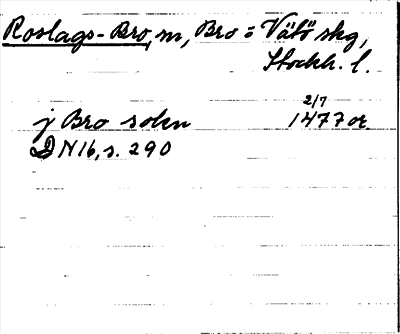 Roslags-Bro, m, Bro o Vätö skg,
Stockh. l.
2/7
j Bro sokn 1477 or.
DN 16, s. 290